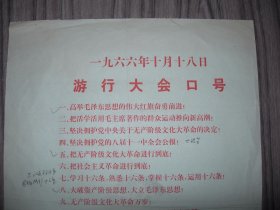 一九六六年十月十八日
游行大会口号
一、高举毛泽东思想的伟大红旗奋勇前进!
二、把活学活用毛主席著作的群众运动推向新高潮!
三、坚决拥护党中央关于无产阶级文化大革命的决定!
四、坚决拥护党的八届十一中全会公报!
五、把无产阶级文化大革命进行到底!
六、把社会主义革命进行到底!
七、学习十六条,熟悉十六条,掌握十六条,运用十六条!
八、大破资产阶级思想,大立毛泽东思想!
九、无产阶级文化大革命万岁!